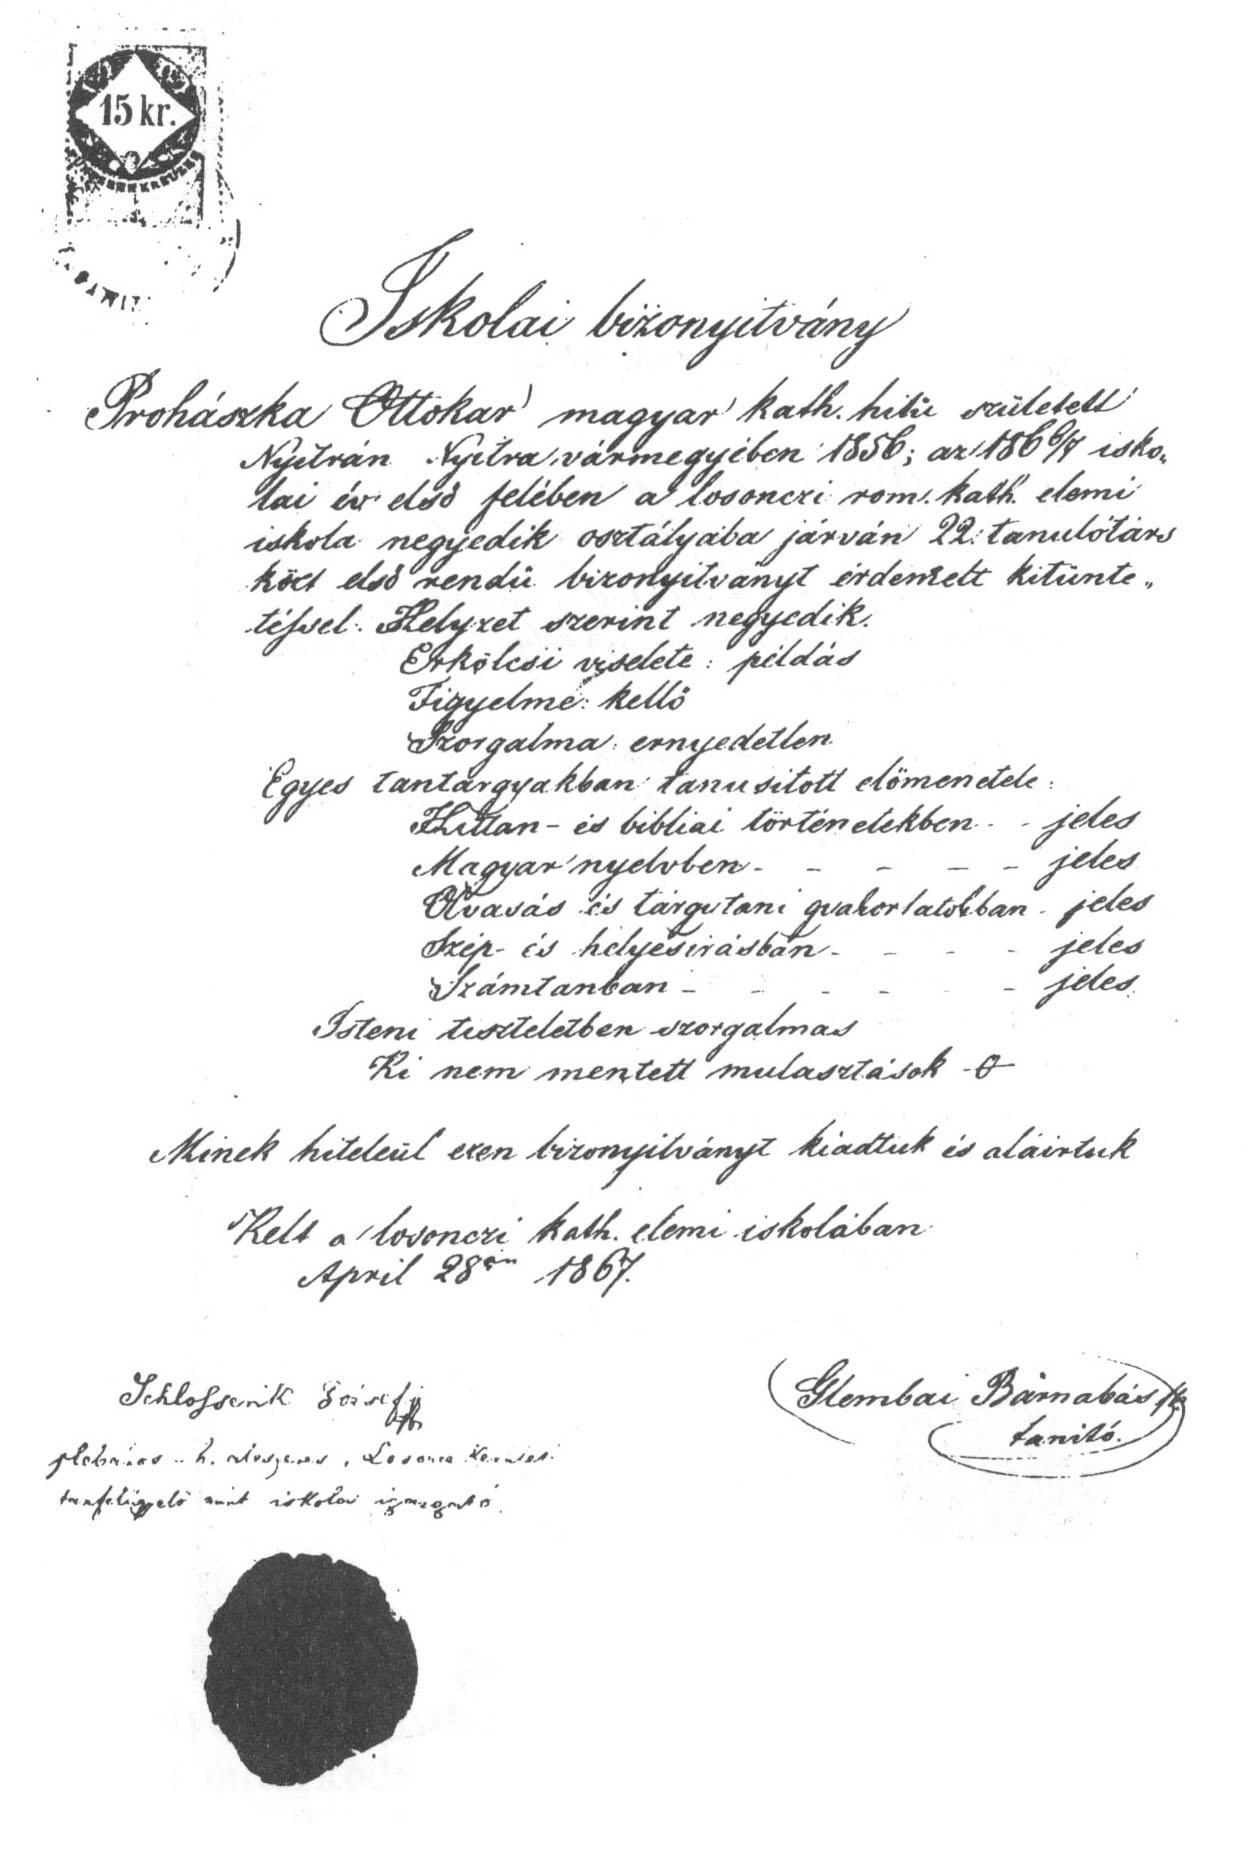 15 kr.
Iskolai bizonyitvány
Prohászka Ottokar magyar kath. hitü született
Nyitrán Nyitra vármegyében 1856; az 1866/7 isko„
lai év első felében a losonczi rom. kath. elemi
iskola negyedik osztályába járván 22. tanulótárs
közt első rendü bizonyitványt érdemlett kitünte„
téssel. Helyzet szerint negyedik.
Erkölcsi viselete: példás
Figyelme: kellő
Szorgalma: ernyedetlen
Egyes tantárgyakban tanusitott előmenetele:
Hittan- és bibliai történetekben - - jeles
Magyar nyelvben - - - - - - jeles
Olvasás és tárgytani gyakorlatokban - jeles
Szép- és helyesirásban - - - - jeles
Számtanban - - - - - - jeles.
Isteni tiszteletben szorgalmas
Ki nem mentett mulasztások -0-
Minek hiteleül ezen bizonyitványt kiadtuk és aláirtuk
Kelt a losonczi kath. elemi iskolában
April 28án 1867.
Schlosserik József
Glembai Bárnabás
tanitó.
plébános h. alesperes, Losoncz
tanfelügyelő mint iskolai igazgató.